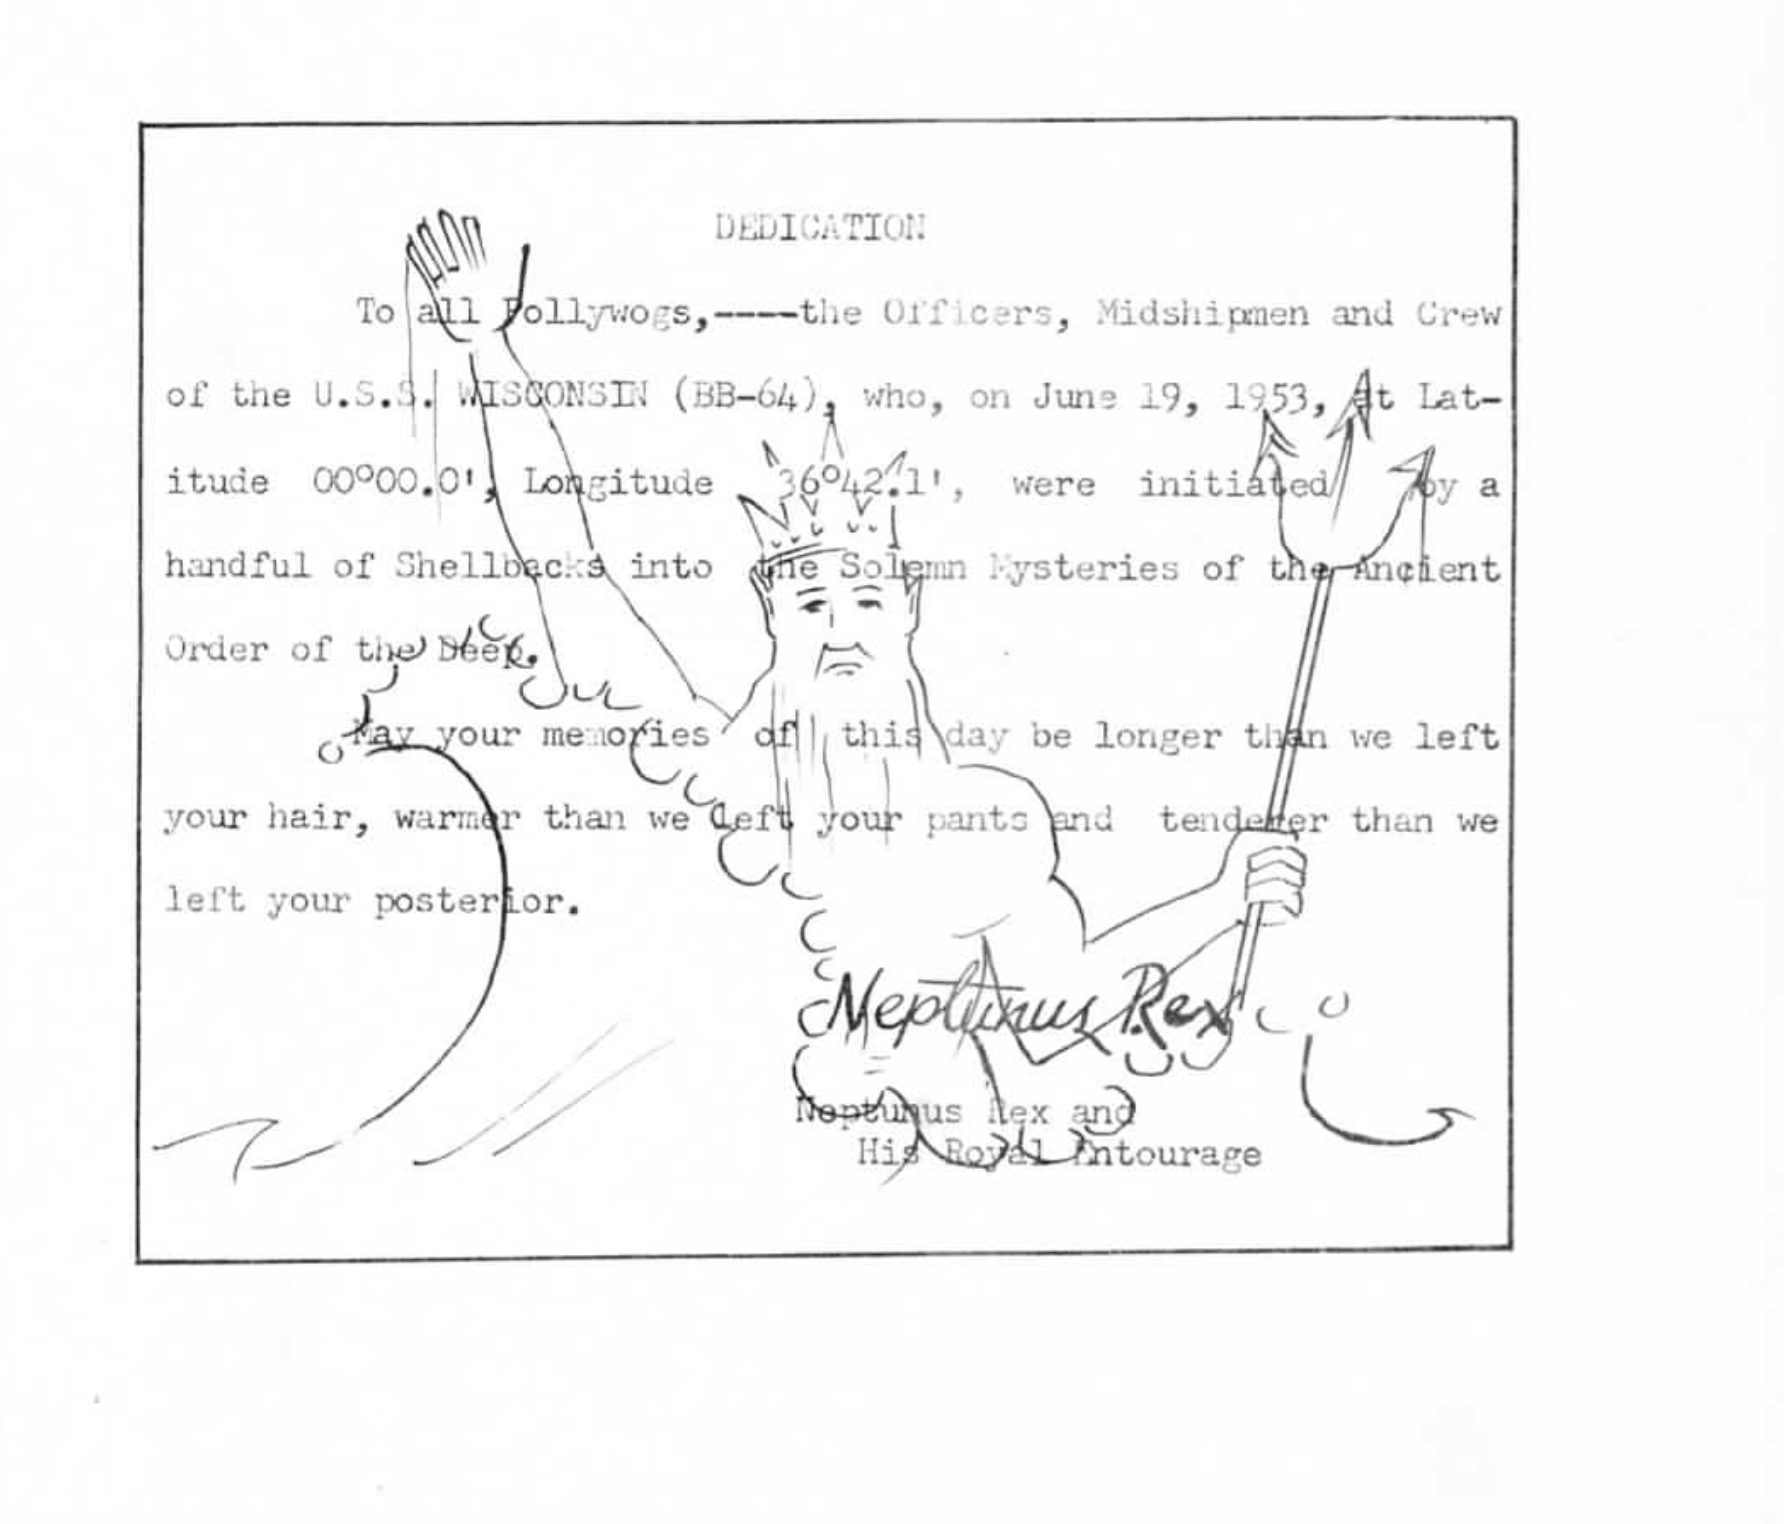 DEDICATION
To all Pollywogs,----the Officers, Midshipmen and Crew
of the U.S.S. WISCONSIN (BB-64), who, on June 19, 1953, at Lat-
itude 00°00.0', Longitude 36°42.1', were initiated by a
handful of Shellbacks into the Solemn Mysteries of the Ancient
Order of the Deep.
May your memories of this day be longer than we left
your hair, warmer than we left your pants and tenderer than we
left your posterior.
Neptunus Rex
Neptunus Rex and
His Royal Entourage